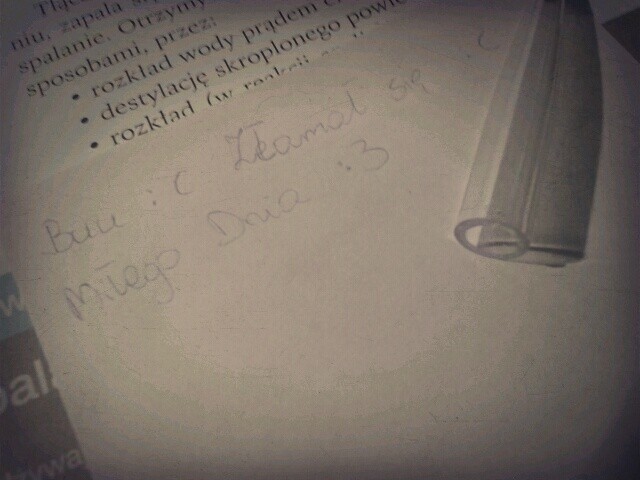 niu, zapala się
spalanie. Otrzymy
sposobami, przez:
• rozkład wody prądem
• destylację skroplonego powie
• rozkład (w reakcji
Buu :( Złamał się :(
Miłego Dnia :3